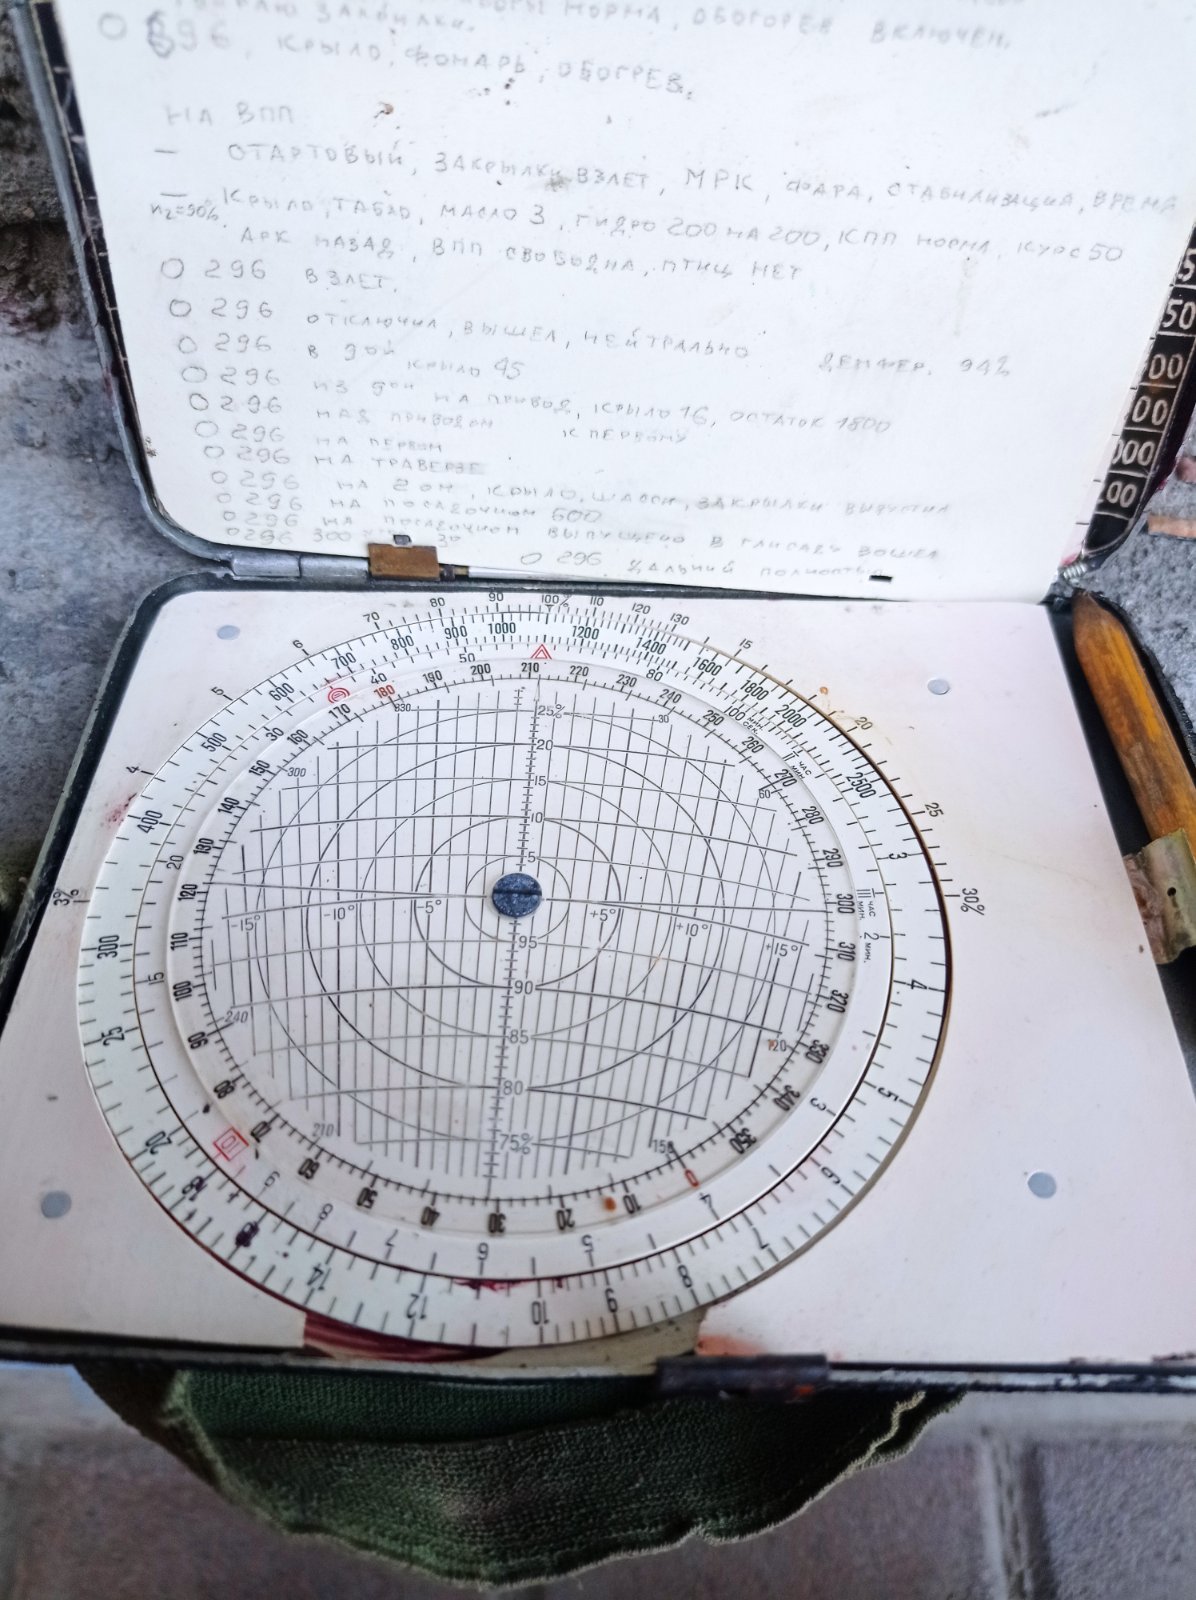 НОРМА, ОБОГОРЕВ ВКЛЮЧЕН,
О 696, КРЫЛО, ФОНАРЬ, ОБОГРЕВ.
НА ВПП
— СТАРТОВЫЙ, ЗАКРЫЛКИ ВЗЛЕТ, МРК, ФАРА, СТАБИЛИЗАЦИЯ, ВРЕМЯ
— КРЫЛО, ТАБЛО, МАСЛО 3, ГИДРО 200 НА 200, КПП НОРМА, КУРС 50
n₂=90%
АРК НАЗАД, ВПП СВОБОДНА, ПТИЦ НЕТ
О 296 ВЗЛЕТ.
О 296 ОТКЛЮЧИЛ, ВЫШЕЛ, НЕЙТРАЛЬНО ДЕМФЕР. 94%
О 296 В ЗОН КРЫЛО 45
О 296 ИЗ ЗОН НА ПРИВОД, КРЫЛО 16, ОСТАТОК 1800
О 296 НАД ПРИВОДОМ К ПЕРВОМУ
О 296 НА ПЕРВОМ
О 296 НА ТРАВЕРЗЕ
О 296 НА 2ОМ, КРЫЛО, ШАССИ, ЗАКРЫЛКИ ВЫПУСТИЛ
О 296 НА ПОСЛЕДНИЙ 600
О 296 НА ПОСЛЕДНИЙ ВЫПУЩЕНО В ГЛИСАДУ ВОШЕЛ
О 296 300
О 296 ДАЛЬНИЙ ПОЛНОСТЬЮ
50
00
00
000
00
3% 4 5 6 70 80 90 100% 110 120 130 15 20 25 30%
10 12 14 20 25 300 400 500 600 700 800 900 1000 1200 1400 1600 1800 2000 2500 3 4 5 6 7 8 9
3 4 5 6 7 8 9 10 15 20 30 40 50 80 100 МИН. СЕК. 1 ЧАС МИН. 1 ЧАС МИН. 2 МИН.
0 10 20 30 40 50 60 70 80 90 100 110 120 130 140 150 160 170 180 190 200 210 220 230 240 250 260 270 280 290 300 310 320 330 340 350
330 30
300 60
25%
20
15
10
5
-15° -10° -5° +5° +10° +15°
95
90
85
80
75%
240 120
210 150